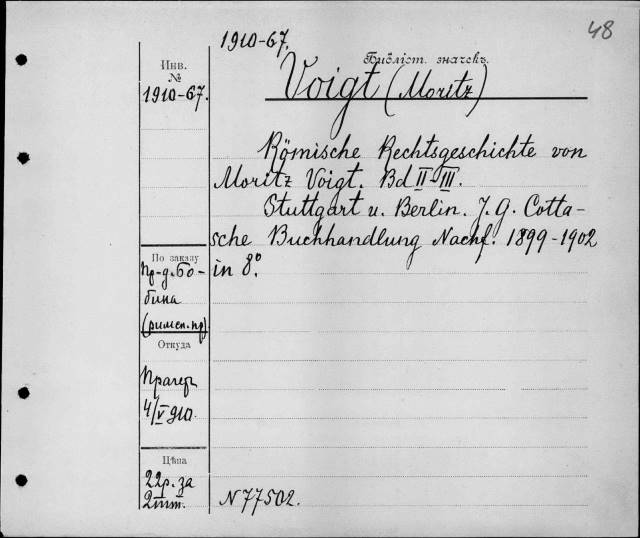 48
1910-67.
Инв.
№
Библіот. значекъ.
1910-67.
Voigt (Moritz)
Römische Rechtsgeschichte von
Moritz Voigt. Bd II-III.
Stuttgart u. Berlin. J. G. Cotta-
sche Buchhandlung Nachf. 1899-1902
in 8°.
По заказу
Пр-д. Бо-
бина
(римск. пр)
Откуда
Прагеръ
4/V 910.
Цѣна
22р. за
2 т.
N 77502.